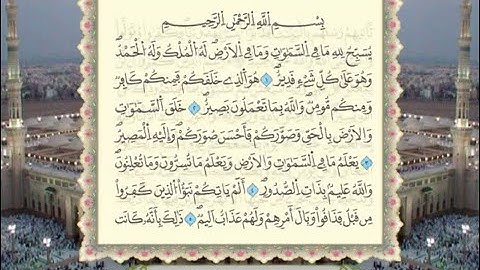 بِسْمِ اللَّهِ الرَّحْمٰنِ الرَّحِيمِ
يُسَبِّحُ لِلَّهِ مَا فِي السَّمٰوَاتِ وَمَا فِي الْاَرْضِ لَهُ الْمُلْكُ وَلَهُ الْحَمْدُ
وَهُوَ عَلٰى كُلِّ شَىْءٍ قَدِيرٌ ﴿١﴾ هُوَ الَّذِي خَلَقَكُمْ فَمِنْكُمْ كَافِرٌ
وَمِنْكُمْ مُؤْمِنٌ وَاللَّهُ بِمَا تَعْمَلُونَ بَصِيرٌ ﴿٢﴾ خَلَقَ السَّمٰوَاتِ
وَالْاَرْضَ بِالْحَقِّ وَصَوَّرَكُمْ فَاَحْسَنَ صُوَرَكُمْ وَاِلَيْهِ الْمَصِيرُ
﴿٣﴾ يَعْلَمُ مَا فِي السَّمٰوَاتِ وَالْاَرْضِ وَيَعْلَمُ مَا تُسِرُّونَ وَمَا تُعْلِنُونَ
وَاللَّهُ عَلِيمٌ بِذَاتِ الصُّدُورِ ﴿٤﴾ اَلَمْ يَاْتِكُمْ نَبَؤُا الَّذِينَ كَفَرُوا
مِنْ قَبْلُ فَذَاقُوا وَبَالَ اَمْرِهِمْ وَلَهُمْ عَذَابٌ اَلِيمٌ ﴿٥﴾ ذٰلِكَ بِاَنَّهُ كَانَتْ